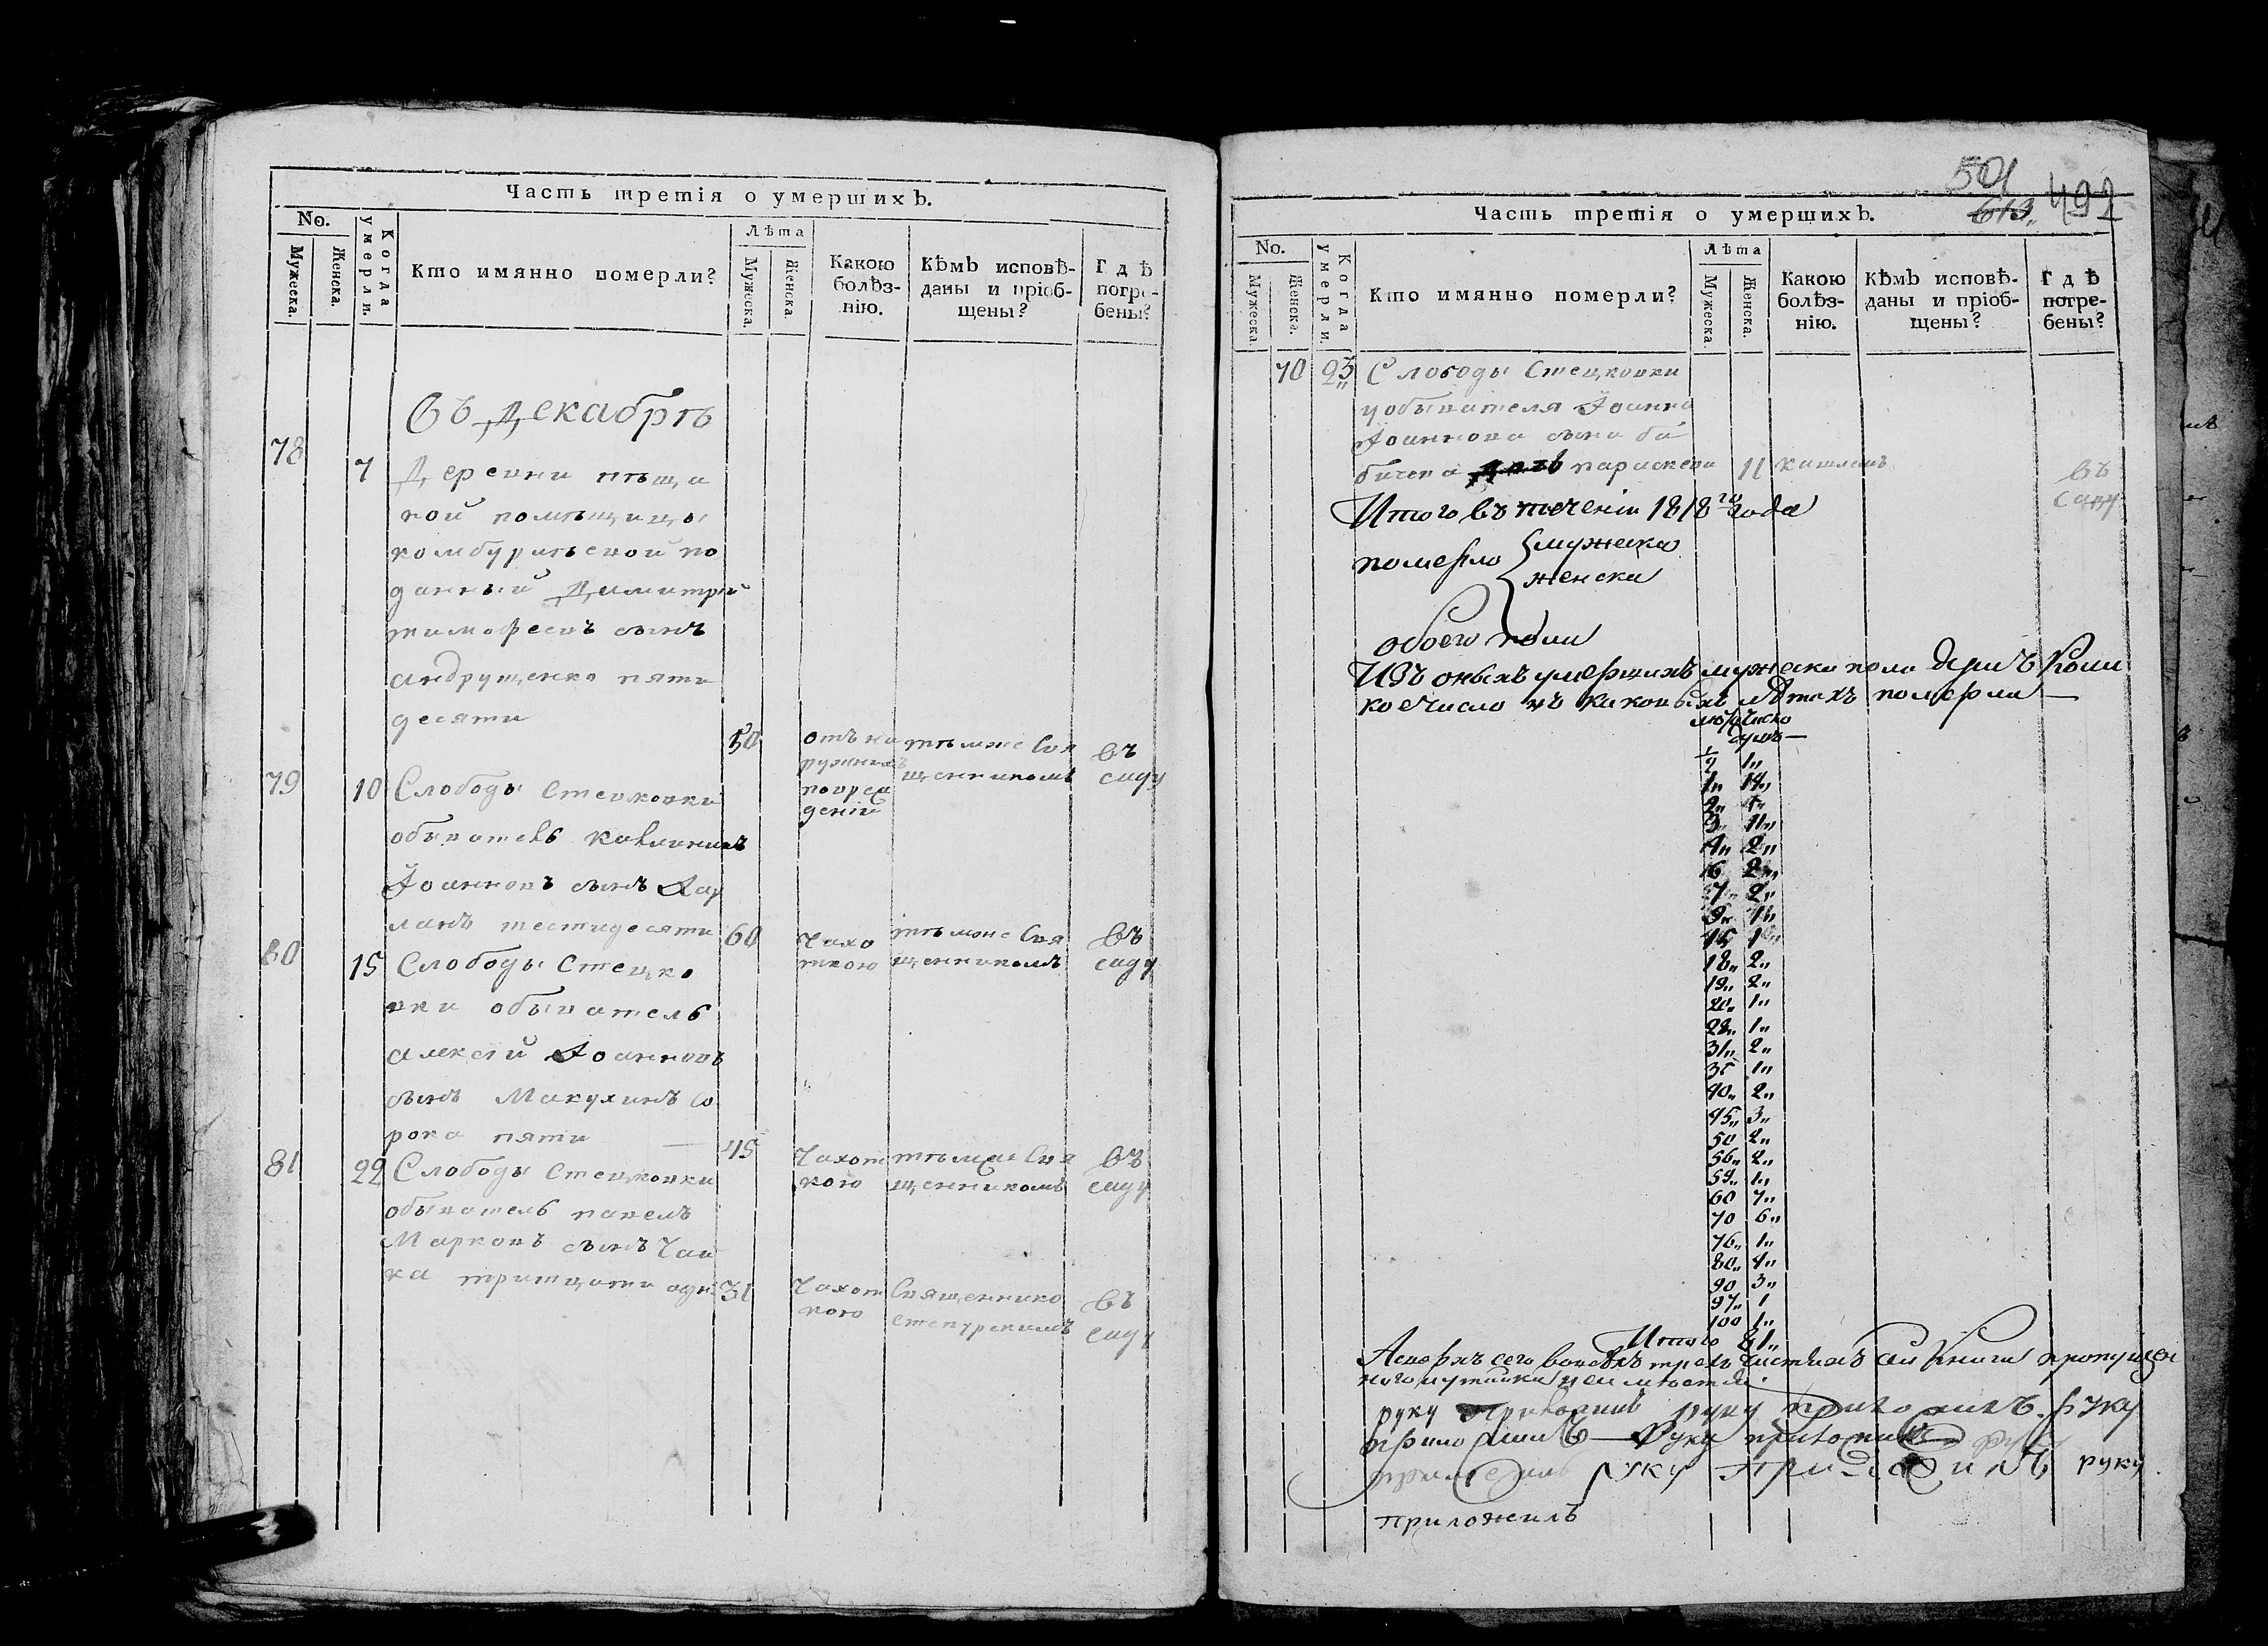 Часть третія о умершихъ.
No.
Мужеска.
Женска.
Когда умерли.
Кто имянно померли?
Лѣта
Мужеска.
Женска.
Какою болѣз-
нію.
Кѣмъ исповѣ-
даны и пріоб-
щены?
Гдѣ
погре-
бены?
Въ Декабрѣ
78
7
Деревни
кой помѣщицы
комбурлѣевой по
данный Димитрій
тимофеевъ сынъ
андрущенко пяти
десяти
50
отъ на
ружнихъ
повреж
деній
тѣмже Свя
щенникомъ
въ
саду
79
10
Слободы Стецковки
обыватель
Іоанновъ сынъ
шестидесяти
60
Чахо
ткою
тѣмже Свя
щенникомъ
въ
саду
80
15
Слободы Стецко
вки обыватель
алексѣй Іоанновъ
сынъ Макухинъ со
рока пяти
45
Чахот
кою
тѣмже Свя
щенникомъ
въ
саду
81
22
Слободы Стецковки
обыватель павелъ
Марковъ сынъ Чай
ка тритцати одн
31
Чахот
кою
Священнико
въ
саду
501
613
492
Часть третія о умершихъ.
No.
Мужеска.
Женска.
Когда умерли.
Кто имянно померли?
Лѣта
Мужеска.
Женска.
Какою
болѣз-
нію.
Кѣмъ исповѣ-
даны и пріоб-
щены?
Гдѣ
погре-
бены?
70
23
Слободы Стецковки
у обывателя Іоанна
Іоаннова сына ба
бичева дочь параскева
11
кашлемъ
въ
саду
Итого въ теченіи 1818го года
померло мужеска
женска
обоего пола
Изъ оныхъ умершихъ мужеска пола душъ Коли
кое число въ каковыхъ лѣтахъ померли —
лѣта число
душъ —
1/2 1
1 14
3 11
4 2
6 2
7 2
9 1
15 1
18 2
19 2
20 1
28 1
31 2
35 1
40 2
45 3
50 2
56 2
59 1
60 7
70 6
76 1
80 4
90 3
97 1
100 1
Итого 81
руку приложилъ руку приложилъ. руку
приложилъ — Руку приложилъ
приложилъ руку приложилъ руку
приложилъ